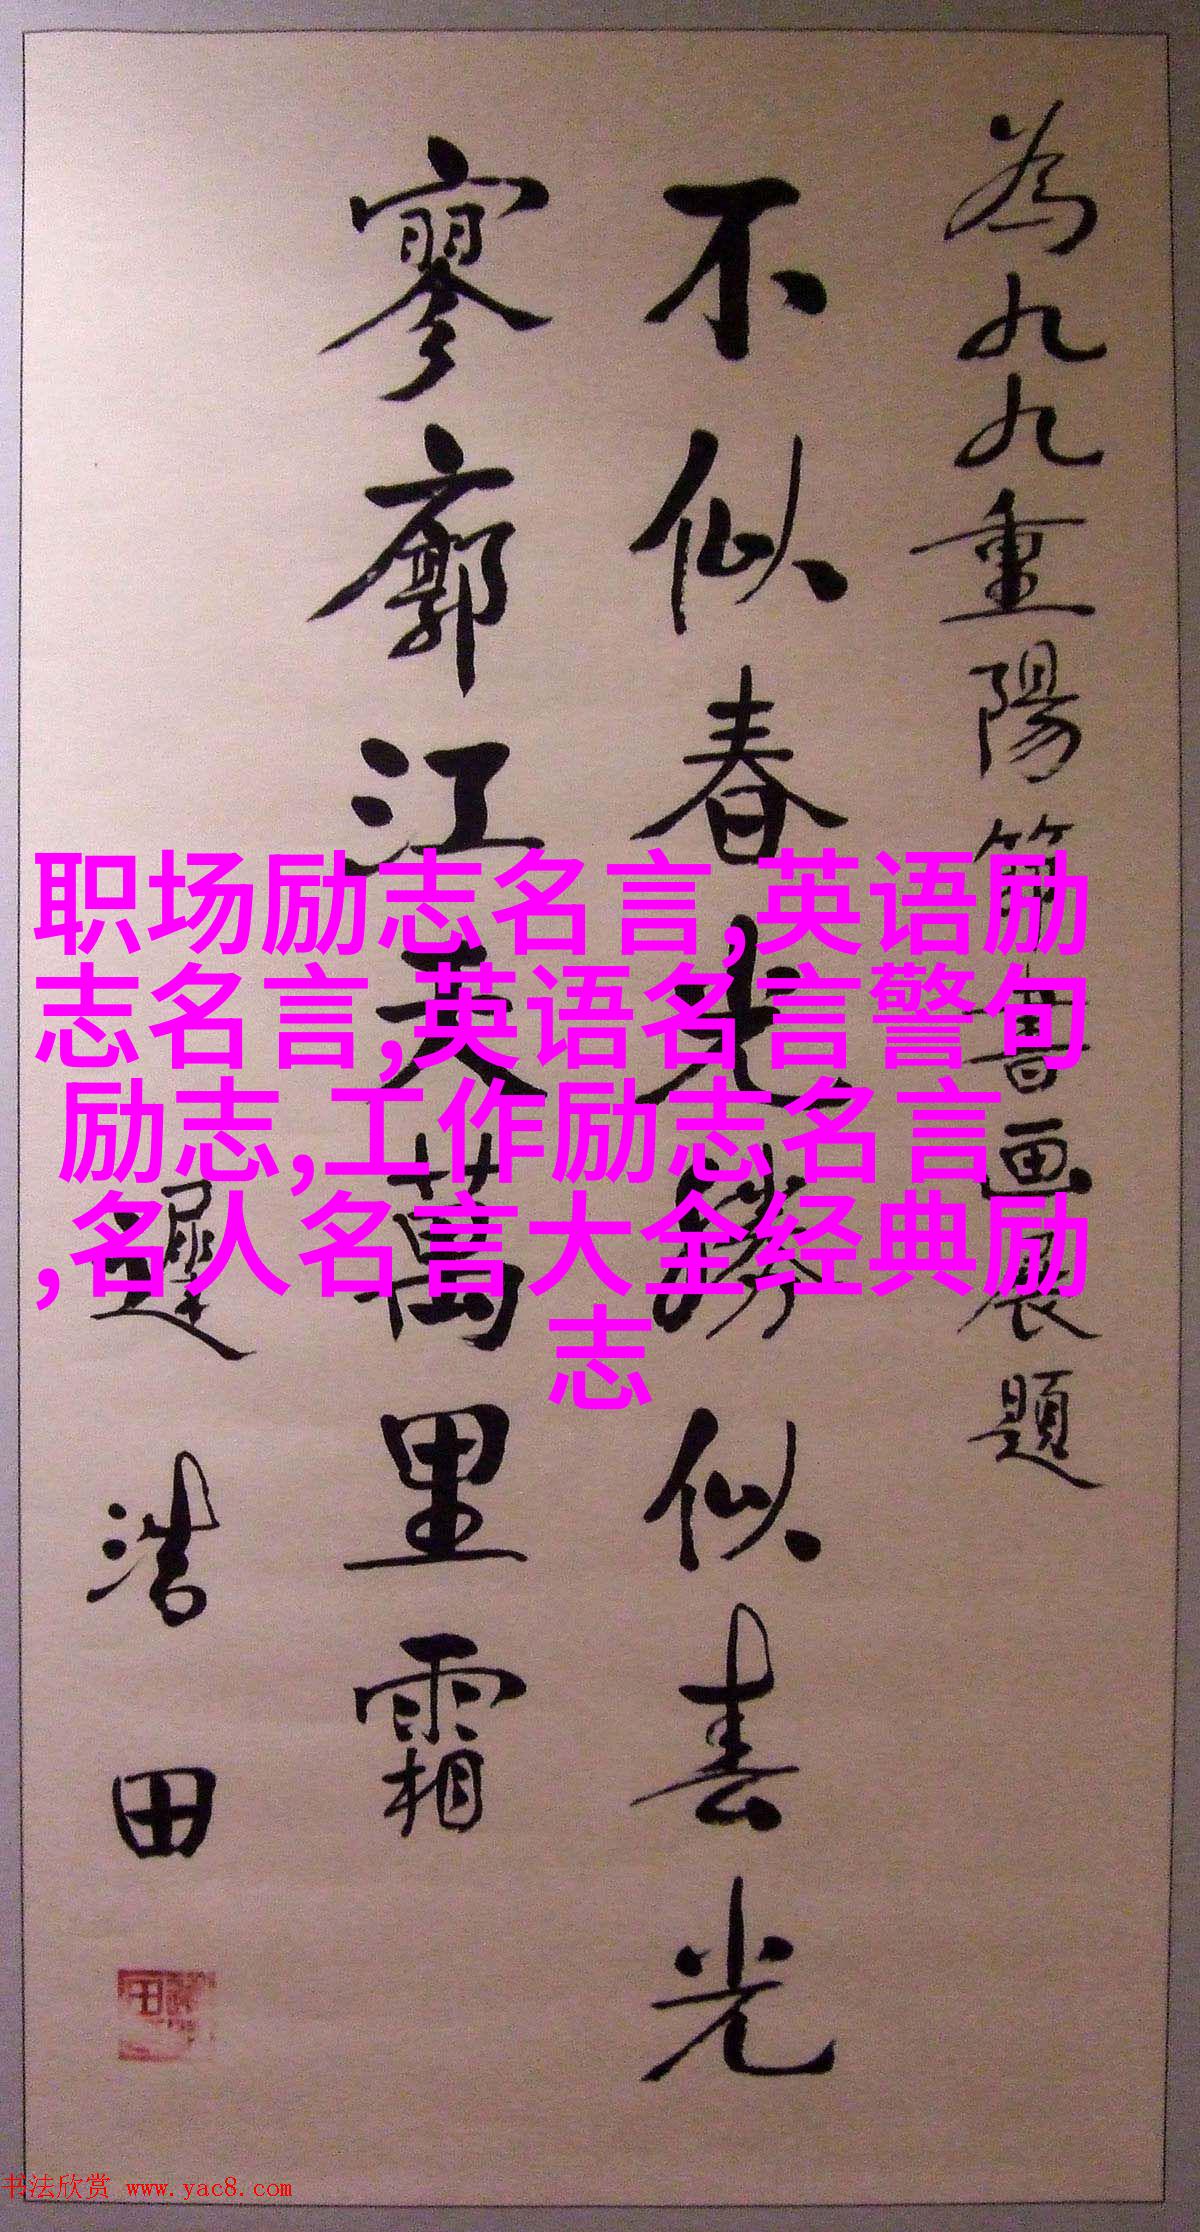 為九九重陽節書画展題
不似春光勝似春光
寥廓江天萬里霜
遲浩田
职场励志名言,英语励
志名言,英语名言警句
励志,工作励志名言
,名人名言大全经典励
志
书法欣赏 www.yac8.com